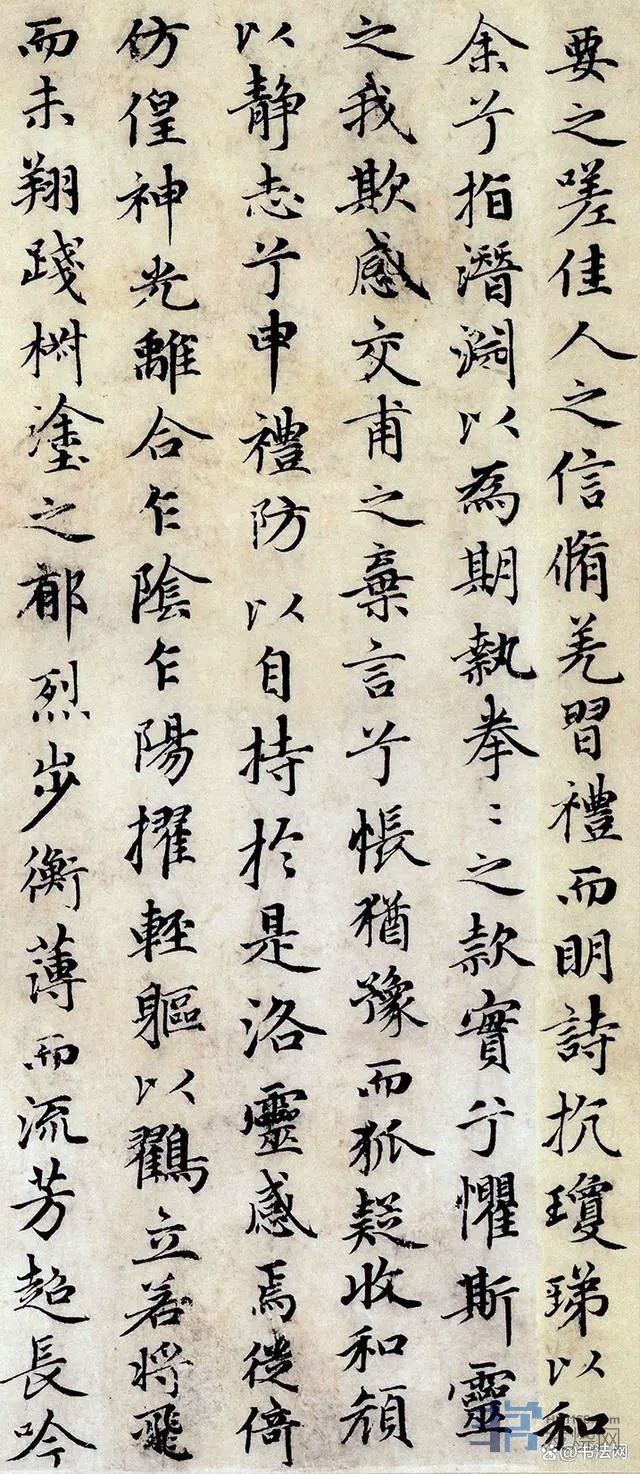 要之嗟佳人之信脩羌習禮而明詩抗瓊珶以和
余兮指潛淵以為期執拳〻之款實兮懼斯靈
之我欺感交甫之棄言兮悵猶豫而狐疑收和顏
以靜志兮申禮防以自持於是洛靈感焉徙倚
仿偟神光離合乍陰乍陽擢輕軀以鶴立若將飛
而未翔踐椒塗之郁烈步衡薄而流芳超長吟
@书法网